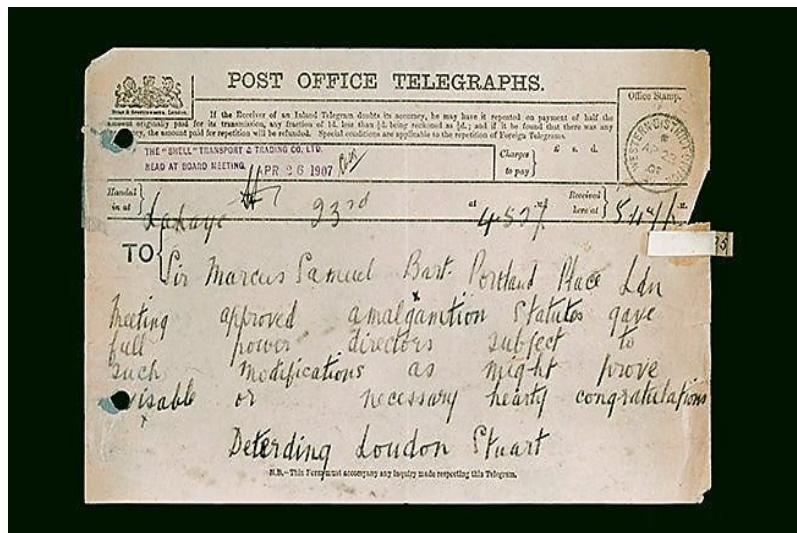 POST OFFICE TELEGRAPHS.
Office Stamp.
If the Receiver of an Inland Telegram doubts its accuracy, he may have it repeated on payment of half the
amount originally paid for its transmission, any fraction of 1d. less than ½d. being reckoned as ½d.; and if it be found that there was any
the amount paid for repetition will be refunded. Special conditions are applicable to the repetition of Foreign Telegrams.
THE "SHELL" TRANSPORT & TRADING CO. LTD.
READ AT BOARD MEETING. APR 26 1907
Charges to pay
£ s. d.
WESTERN DISTRICT OFFICE
Handed in at
Lahaye 23rd
at 4.50
Received here at
TO
Sir Marcus Samuel Bart. Portland Place Ldn
Meeting approved amalgamation Statutes gave
full power directors subject to
such modifications as might prove
visable or necessary hearty congratulations
Deterding Loudon Stuart
N.B.—This Form must accompany any inquiry made respecting this Telegram.